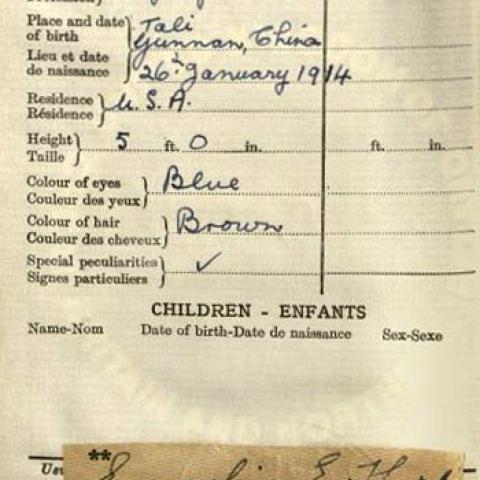 Place and date of birth Tali
Yunnan, China
Lieu et date de naissance 26th January 1914
Residence
Résidence U. S. A.
Height
Taille 5 ft. 0 in. ft. in.
Colour of eyes
Couleur des yeux Blue
Colour of hair
Couleur des cheveux Brown
Special peculiarities
Signes particuliers ✓
CHILDREN - ENFANTS
Name-Nom Date of birth-Date de naissance Sex-Sexe
**